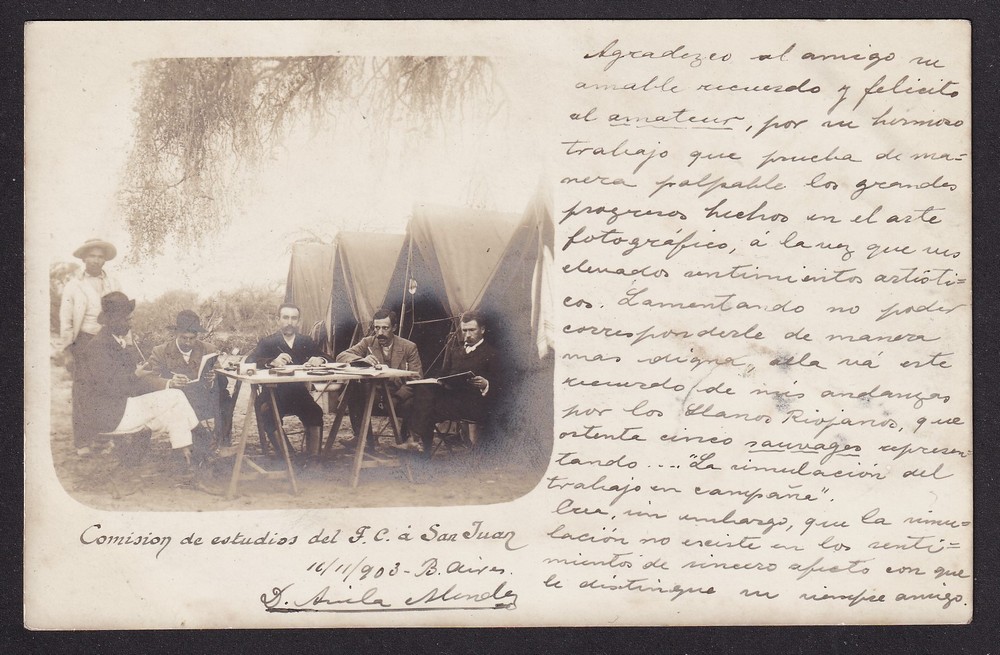 Agradezco al amigo su
amable recuerdo y felicito
al amateur, por su hermoso
trabajo que prueba de ma=
nera palpable los grandes
progresos hechos en el arte
fotográfico, á la vez que sus
elevados sentimientos artísti=
cos. Lamentando no poder
corresponderle de manera
mas digna, alla vá este
recuerdo de mis andanzas
por los Llanos Riojanos, que
ostenta cinco sauvages represen=
tando.... "La simulación del
trabajo en campaña".
Crea, sin embargo, que la simu=
lación no existe en los senti=
mientos de sincero afecto con que
le distingue su siempre amigo.
Comision de estudios del F.C. á San Juan
16/11/903 - B. Aires.
D. Avila Mendez